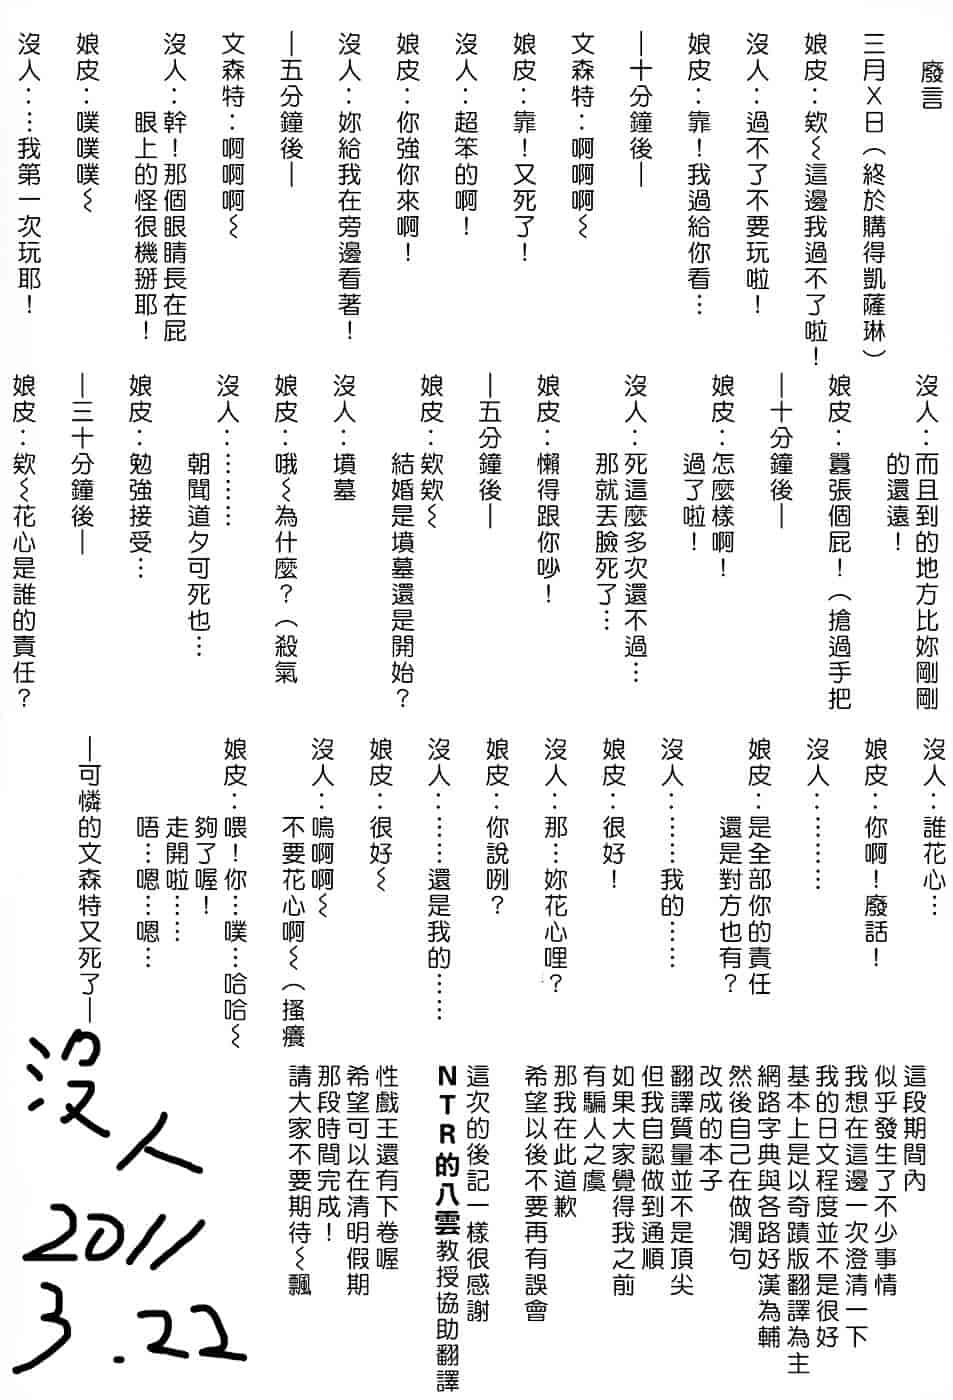 廢言
三月X日（終於購得凱薩琳）
娘皮：欸～這邊我過不了啦！
沒人：過不了不要玩啦！
娘皮：靠！我過給你看…
—十分鐘後—
文森特：啊啊啊～
娘皮：靠！又死了！
沒人：超笨的啊！
娘皮：你強你來啊！
沒人：妳給我在旁邊看著！
—五分鐘後—
文森特：啊啊啊～
沒人：幹！那個眼睛長在屁
眼上的怪很機掰耶！
娘皮：噗噗噗～
沒人：…我第一次玩耶！
沒人：而且到的地方比妳剛剛
的還遠！
娘皮：囂張個屁！（搶過手把
—十分鐘後—
娘皮：怎麼樣啊！
過了啦！
沒人：死這麼多次還不過…
那就丟臉死了…
娘皮：懶得跟你吵！
—五分鐘後—
娘皮：欸欸～
結婚是墳墓還是開始？
沒人：墳墓
娘皮：哦～為什麼？（殺氣
沒人：………
朝聞道夕可死也…
娘皮：勉強接受…
—三十分鐘後—
娘皮：欸～花心是誰的責任？
沒人：誰花心…
娘皮：你啊！廢話！
沒人：………
娘皮：是全部你的責任
還是對方也有？
沒人：……我的……
娘皮：很好！
沒人：那…妳花心哩？
娘皮：你說咧？
沒人：……還是我的……
娘皮：很好～
沒人：嗚啊啊～
不要花心啊～（搔癢
娘皮：喂！你…噗…哈哈～
夠了喔！
走開啦……
唔…嗯…嗯…
—可憐的文森特又死了—
這段期間內
似乎發生了不少事情
我想在這邊一次澄清一下
我的日文程度並不是很好
基本上是以奇蹟版翻譯為主
網路字典與各路好漢為輔
然後自己在做潤句
改成的本子
翻譯質量並不是頂尖
但我自認做到通順
如果大家覺得我之前
有騙人之虞
那我在此道歉
希望以後不要再有誤會
這次的後記一樣很感謝
NTR的八雲教授協助翻譯
性戲王還有下卷喔
希望可以在清明假期
那段時間完成！
請大家不要期待～飄
沒人
2011
3.22